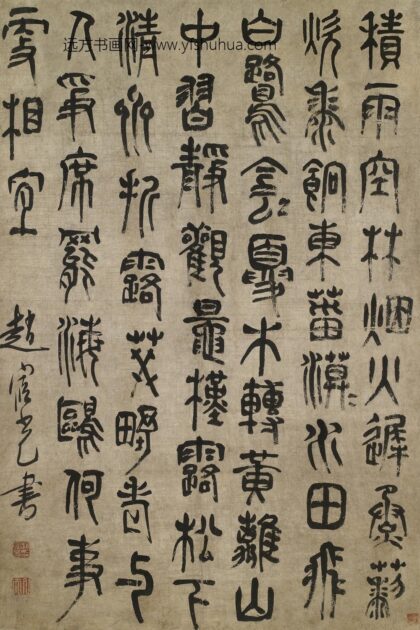 远方书画网 www.yishuhua.com
積雨空林烟火遲蒸藜
炊黍餉東菑漠〻水田飛
白鷺侌〻夏木轉黃離山
中習靜觀槿露松下
清齋折露葵野老与
人爭席罷海鷗何事
相宜
趙宧光書